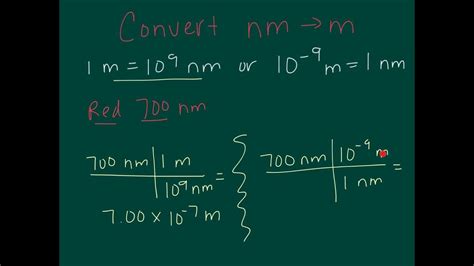 Convert nm → m
1 m = 10⁹ nm or 10⁻⁹ m = 1 nm
Red 700 nm
700 nm | 1 m
10⁹ nm =
7.00 x 10⁻⁷ m
700 nm | 10⁻⁹ m
1 nm =